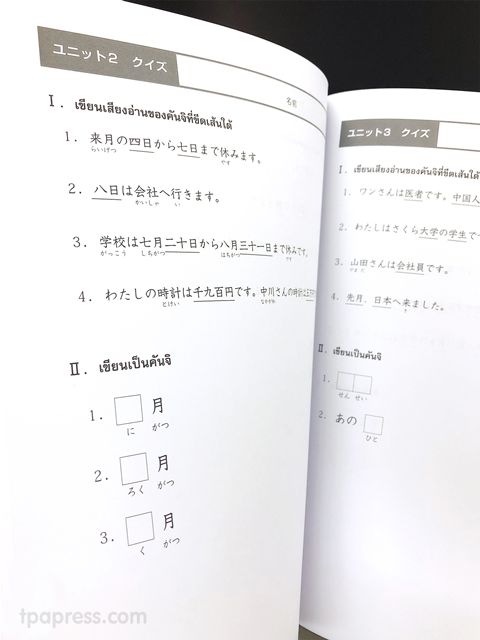 ユニット2 クイズ
名前
I. เขียนเสียงอ่านของคันจิที่ขีดเส้นใต้
1. 来月の四日から七日まで休みます。
らいげつ やす
2. 八日は会社へ行きます。
かいしゃ い
3. 学校は七月二十日から八月三十一日まで休みです。
がっこう しちがつ はちがつ やす
4. わたしの時計は千九百円です。中川さんの時計は三万
とけい なかがわ
II. เขียนเป็นคันจิ
1. 月
に がつ
2. 月
ろく がつ
3. 月
く がつ
ユニット3 クイズ
I. เขียนเสียงอ่านของคันจิที่ขีดเส้นใต้
1. ワンさんは医者です。中国人
2. わたしはさくら大学の学生で
3. 山田さんは会社員です。
やまだ
4. 先月、日本へ来ました。
き
II. เขียนเป็นคันจิ
1.
せん せい
2. あの
ひと
tpapress.com